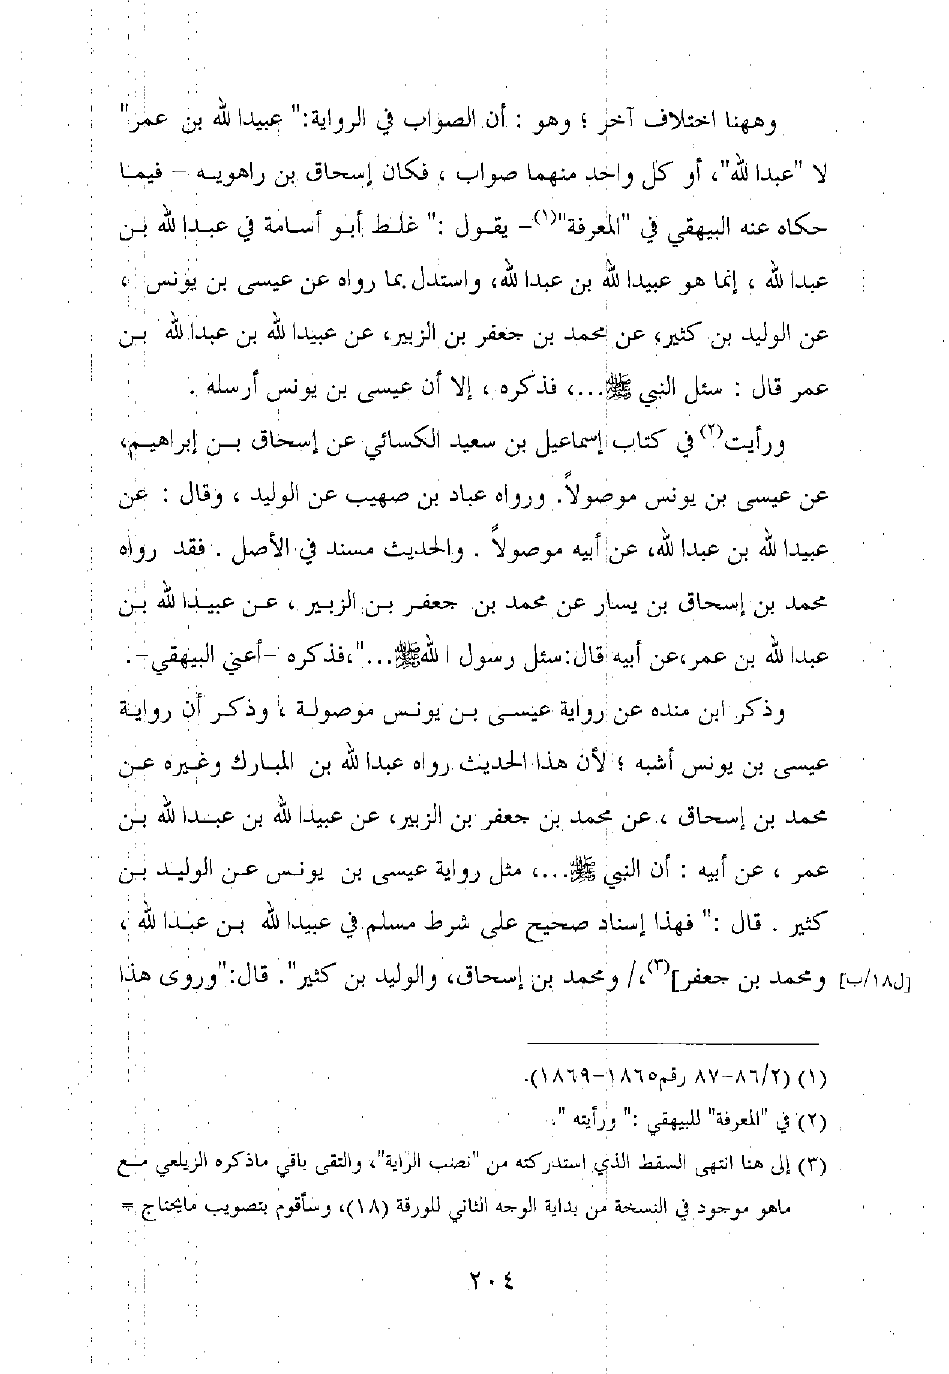 وههنا اختلاف آخر ؛ وهو : أن الصواب في الرواية:" عبيدا لله بن عمر"
لا "عبدا لله"، أو كل واحد منهما صواب ، فكان إسحاق بن راهويه – فيما
حكاه عنه البيهقي في "المعرفة"(١)– يقول :" غلط أبو أسامة في عبدا لله بن
عبدا لله ، إنما هو عبيدا لله بن عبدا لله، واستدل بما رواه عن عيسى بن يونس ،
عن الوليد بن كثير، عن محمد بن جعفر بن الزبير، عن عبيدا لله بن عبدا لله بن
عمر قال : سئل النبي ﷺ...، فذكره ، إلا أن عيسى بن يونس أرسله .
ورأيت(٢) في كتاب إسماعيل بن سعيد الكسائي عن إسحاق بن إبراهيم،
عن عيسى بن يونس موصولاً. ورواه عباد بن صهيب عن الوليد ، وقال : عن
عبيدا لله بن عبدا لله، عن أبيه موصولاً . والحديث مسند في الأصل . فقد رواه
محمد بن إسحاق بن يسار عن محمد بن جعفر بن الزبير ، عن عبيدا لله بن
عبدا لله بن عمر،عن أبيه قال:سئل رسول ا لله ﷺ..."،فذكره –أعني البيهقي–.
وذكر ابن منده عن رواية عيسى بن يونس موصولة ، وذكر أن رواية
عيسى بن يونس أشبه ؛ لأن هذا الحديث رواه عبدا لله بن المبارك وغيره عن
محمد بن إسحاق ، عن محمد بن جعفر بن الزبير، عن عبيدا لله بن عبدا لله بن
عمر ، عن أبيه : أن النبي ﷺ...، مثل رواية عيسى بن يونس عن الوليد بن
كثير . قال :" فهذا إسناد صحيح على شرط مسلم في عبيدا لله بن عبدا لله ،
[ل١٨/ب] ومحمد بن جعفر](٣)،/ ومحمد بن إسحاق، والوليد بن كثير". قال:"وروى هذا
(١) (٨٦/٢–٨٧ رقم١٨٦٥–١٨٦٩).
(٢) في "المعرفة" للبيهقي :" ورأيته ".
(٣) إلى هنا انتهى السقط الذي استدركته من "نصب الراية"، والتقى باقي ماذكره الزيلعي مع
ماهو موجود في النسخة من بداية الوجه الثاني للورقة (١٨)، وسأقوم بتصويب مايحتاج =
٢٠٤